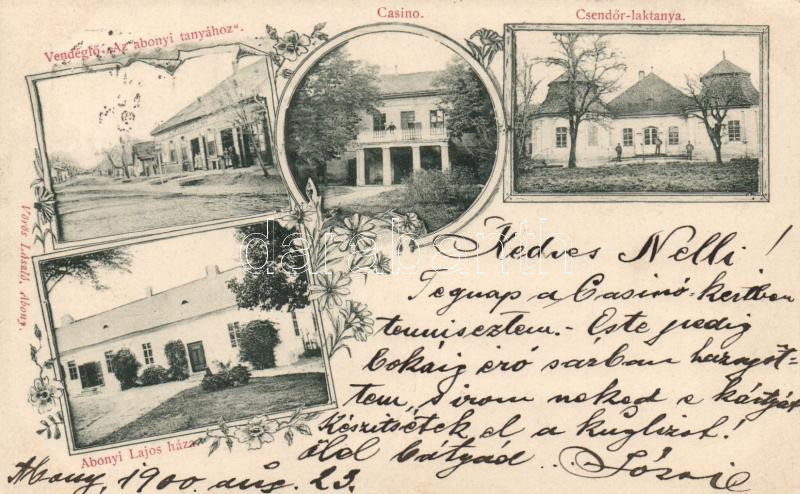 Casino.
Csendőr-laktanya.
Vendéglő „Az abonyi tanyához“.
Vörös László, Abony.
Abonyi Lajos háza.
darabanth
Kedves Nelli!
Tegnap a Casinó-kertben
tenniseztem.- Este pedig
bokáig érő sárban
tem, s irom neked e kártyát
Készitsétek el a kuglizót!
ölel bátyád
Abony, 1900 aug. 23.